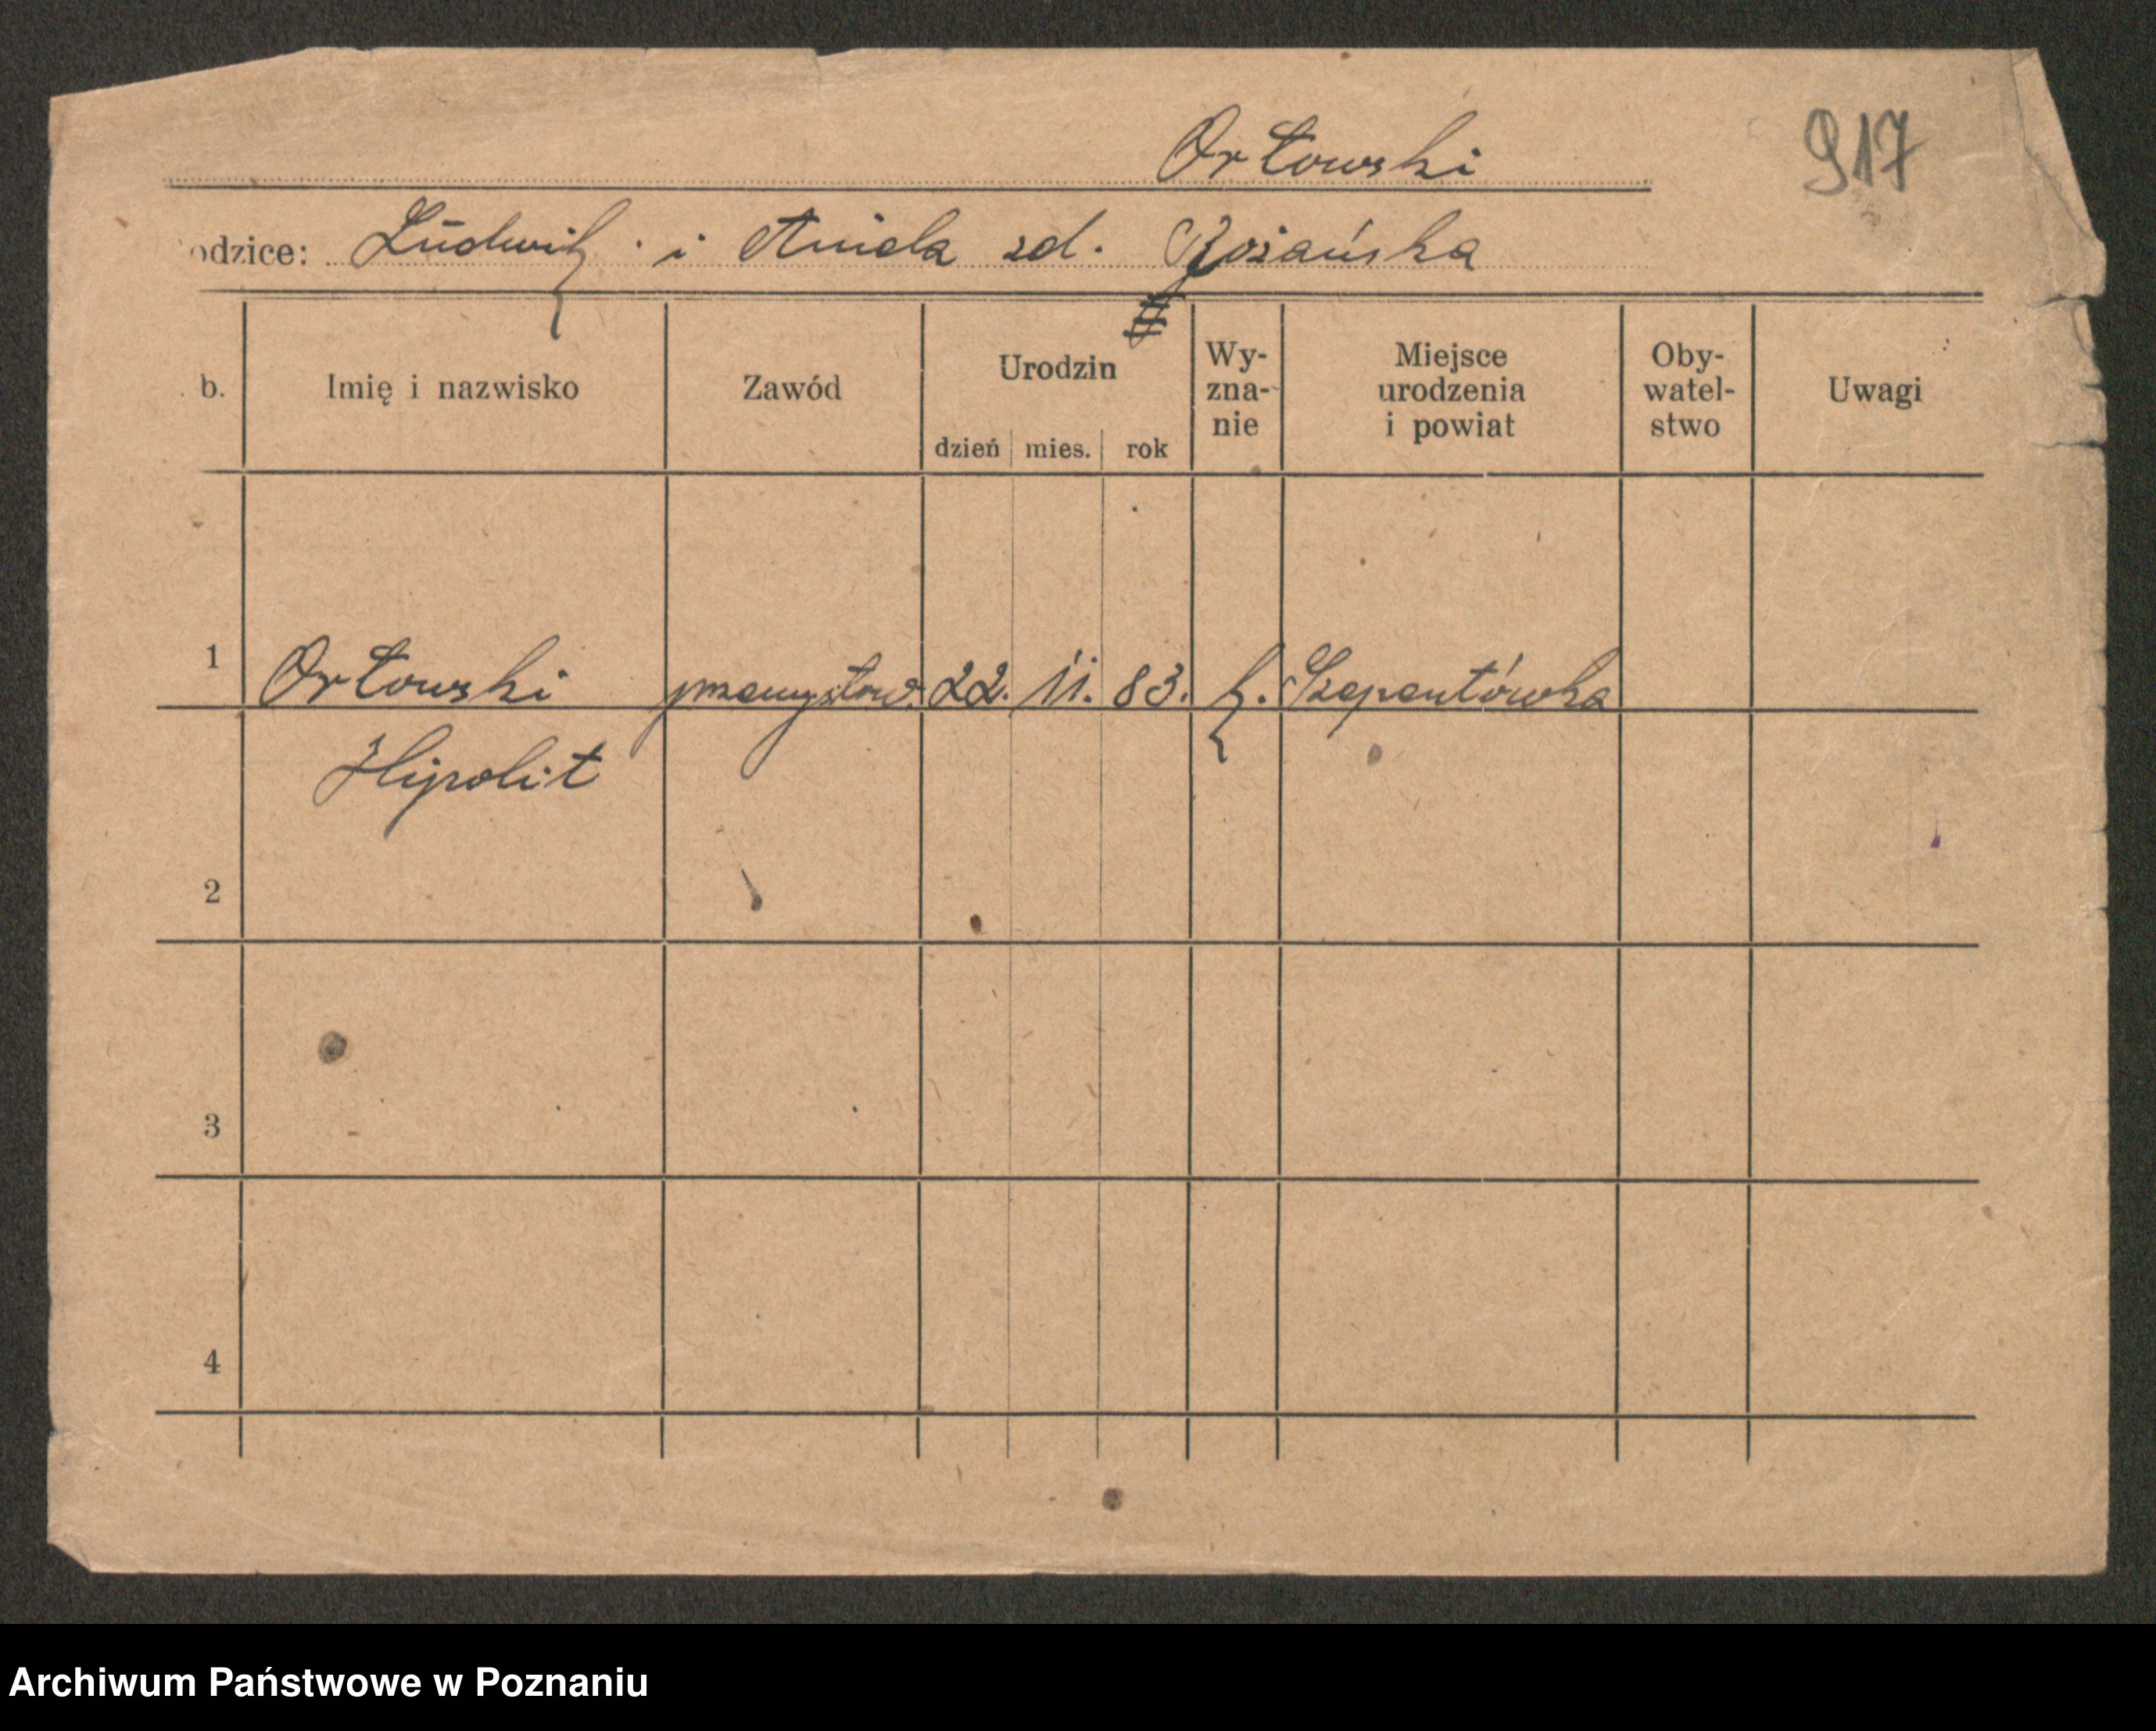 Orłowski
917
odzice: Ludwik i Aniela zd.
b. Imię i nazwisko Zawód Urodzin dzień mies. rok Wy-zna-nie Miejsce urodzenia i powiat Oby-watel-stwo Uwagi
1 Orłowski przemysłow. 22. 11. 83. k. Szepentówka
Hipolit
2
3
4
Archiwum Państwowe w Poznaniu